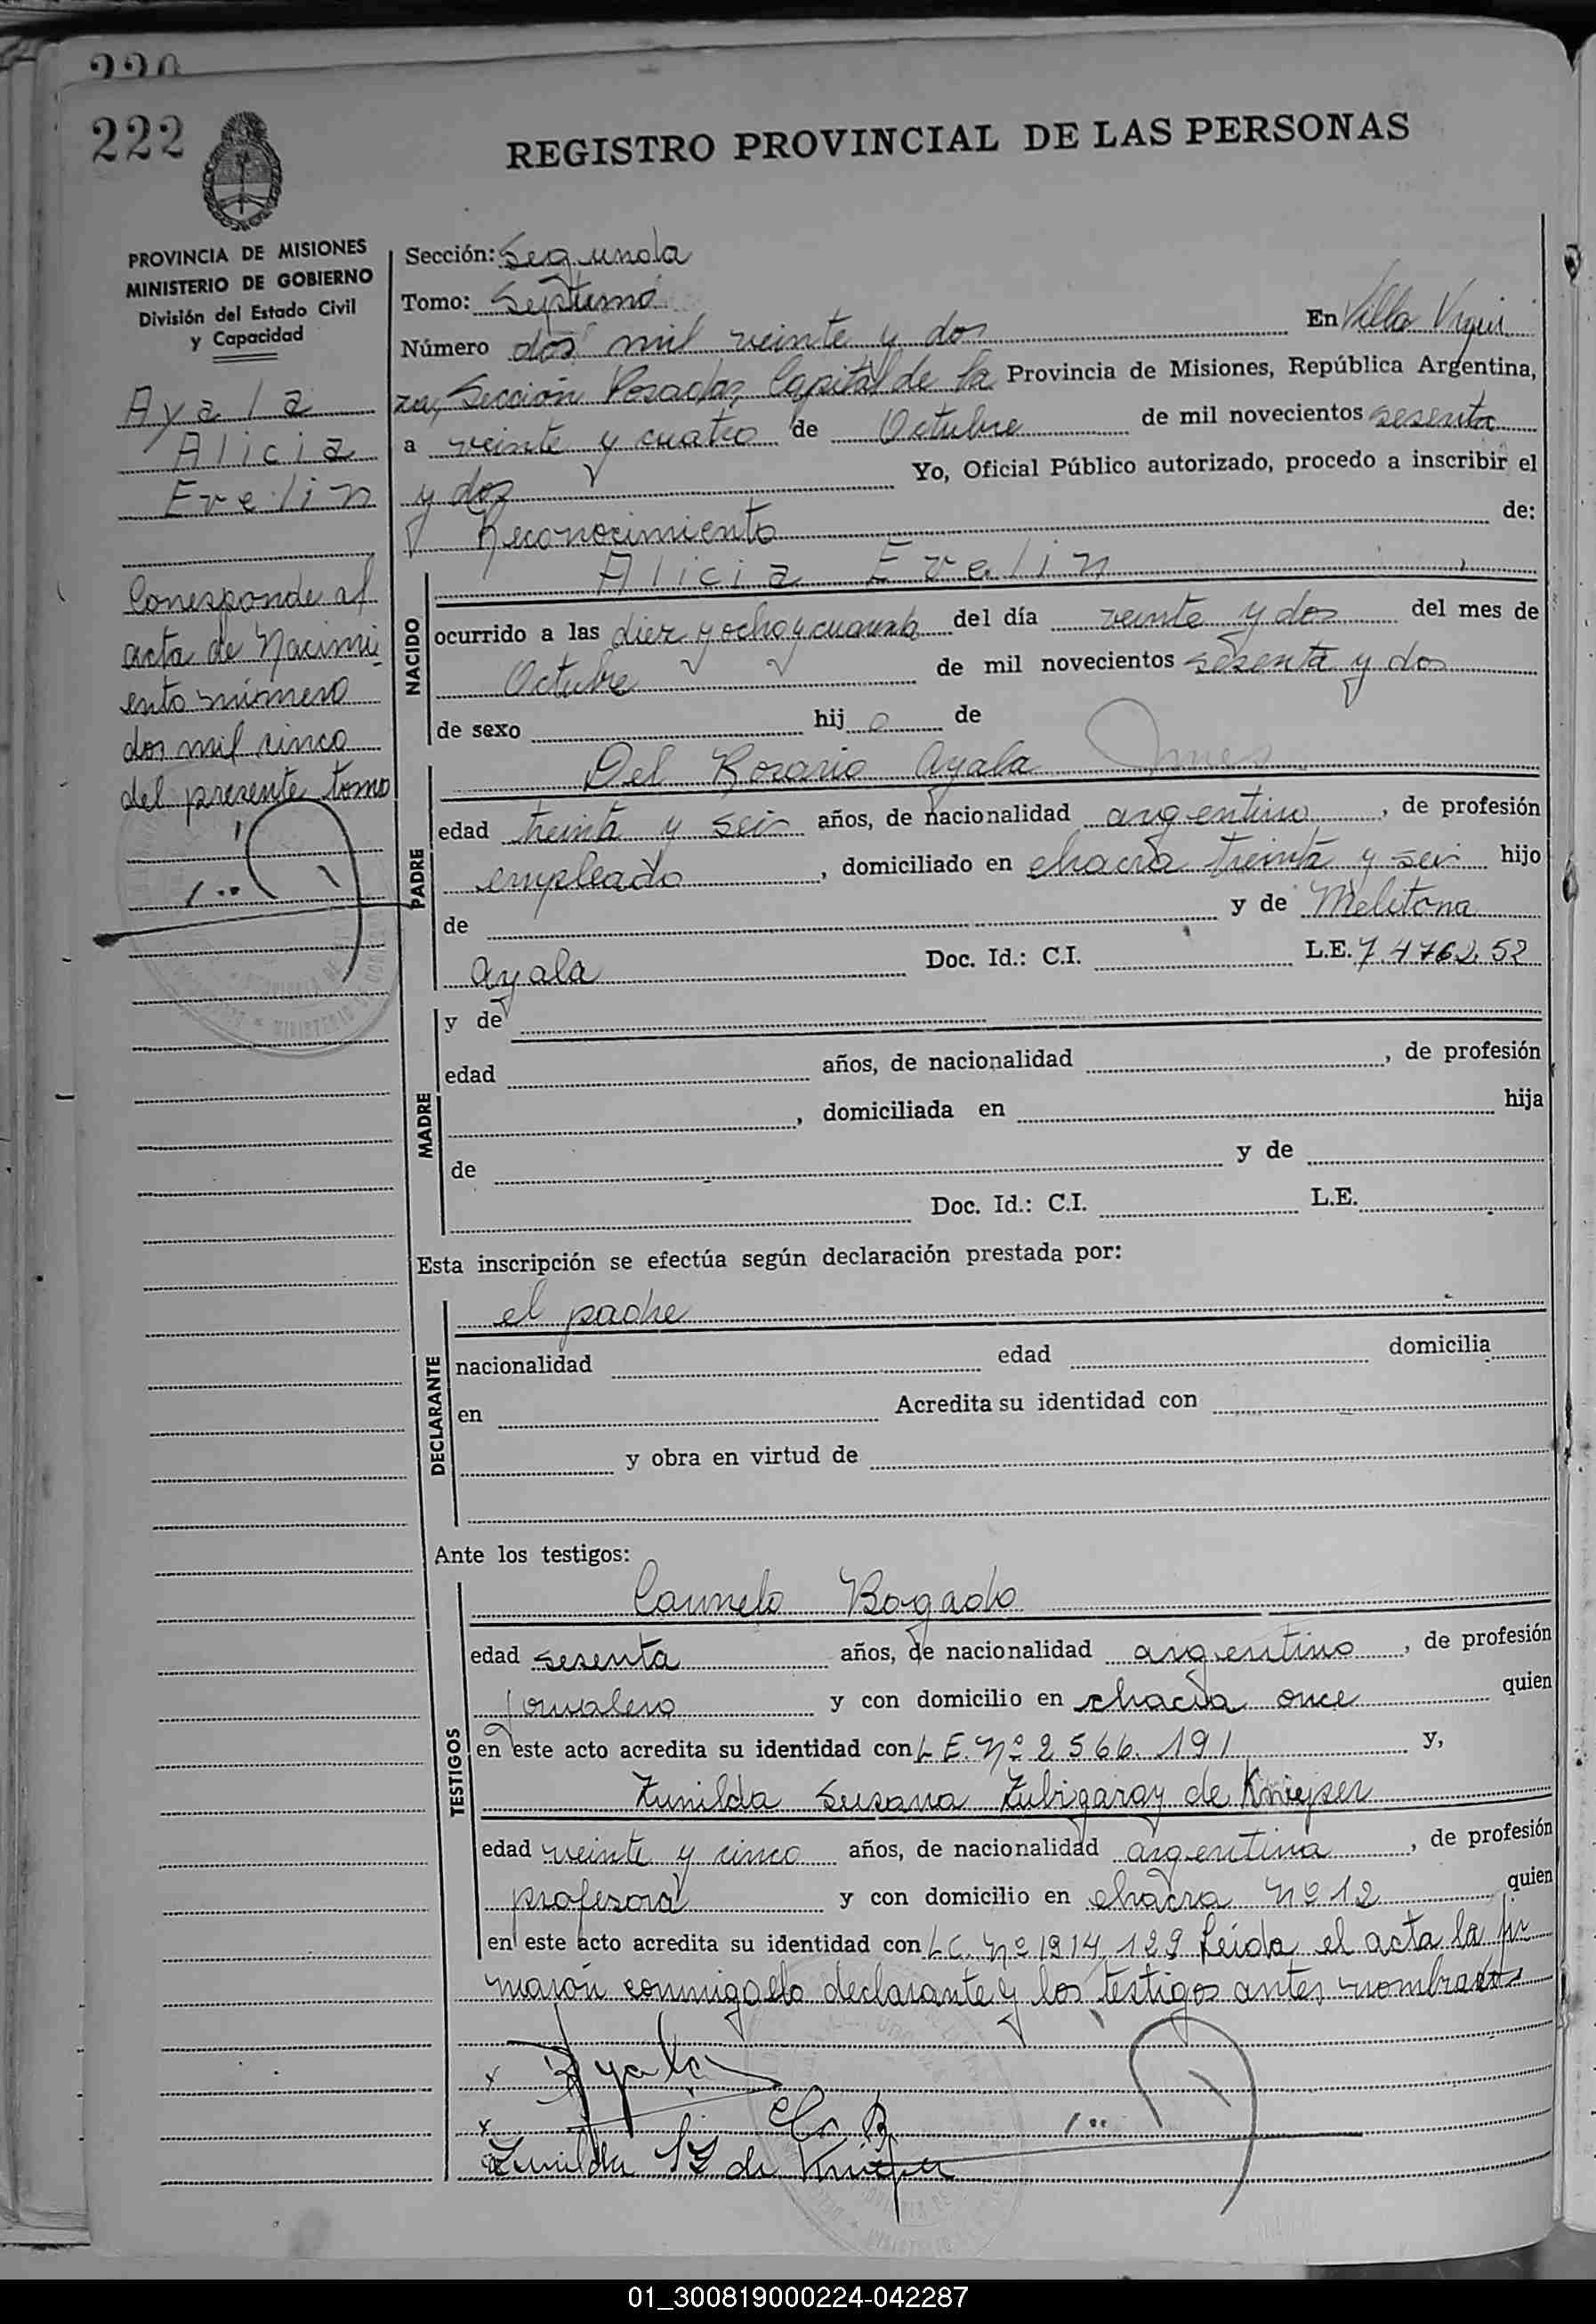 220
222
REGISTRO PROVINCIAL DE LAS PERSONAS
PROVINCIA DE MISIONES
MINISTERIO DE GOBIERNO
División del Estado Civil
y Capacidad
Ayala
Alicia
Evelin
Corresponde al
acta de Nacimi
ento número
dos mil cinco
del presente tomo
Sección: Segunda
Tomo: Septimo
Número dos mil veinte y dos En Villa Urqui
za, Sección Posadas, Capital de la Provincia de Misiones, República Argentina,
a veinte y cuatro de Octubre de mil novecientos sesenta
y dos Yo, Oficial Público autorizado, procedo a inscribir el
Reconocimiento de:
NACIDO
Alicia Evelin
ocurrido a las diez y ocho y cuarenta del día veinte y dos del mes de
Octubre de mil novecientos sesenta y dos
de sexo hij o de
PADRE
Del Rosario Ayala
edad treinta y seis años, de nacionalidad argentino, de profesión
empleado, domiciliado en chacra treinta y seis hijo
de y de Melitona
Ayala Doc. Id.: C.I. L.E. 7.476252
MADRE
y de
edad años, de nacionalidad , de profesión
, domiciliada en hija
de y de
Doc. Id.: C.I. L.E.
Esta inscripción se efectúa según declaración prestada por:
DECLARANTE
el padre
nacionalidad edad domicilia
en Acredita su identidad con
y obra en virtud de
Ante los testigos:
TESTIGOS
Carmelo Bogado
edad sesenta años, de nacionalidad argentino, de profesión
jornalero y con domicilio en chacra once quien
en este acto acredita su identidad con L.E. Nº 2566.191 y,
Zunilda Susana Zubigaray de Knieper
edad veinte y cinco años, de nacionalidad argentina, de profesión
profesora y con domicilio en chacra Nº 12 quien
en este acto acredita su identidad con L.C. Nº 1914.129 Leida el acta la fir
maron conmigo el declarante y los testigos antes nombrados
x Ayala
x
Zunilda SZ de Knieper
01_300819000224-042287